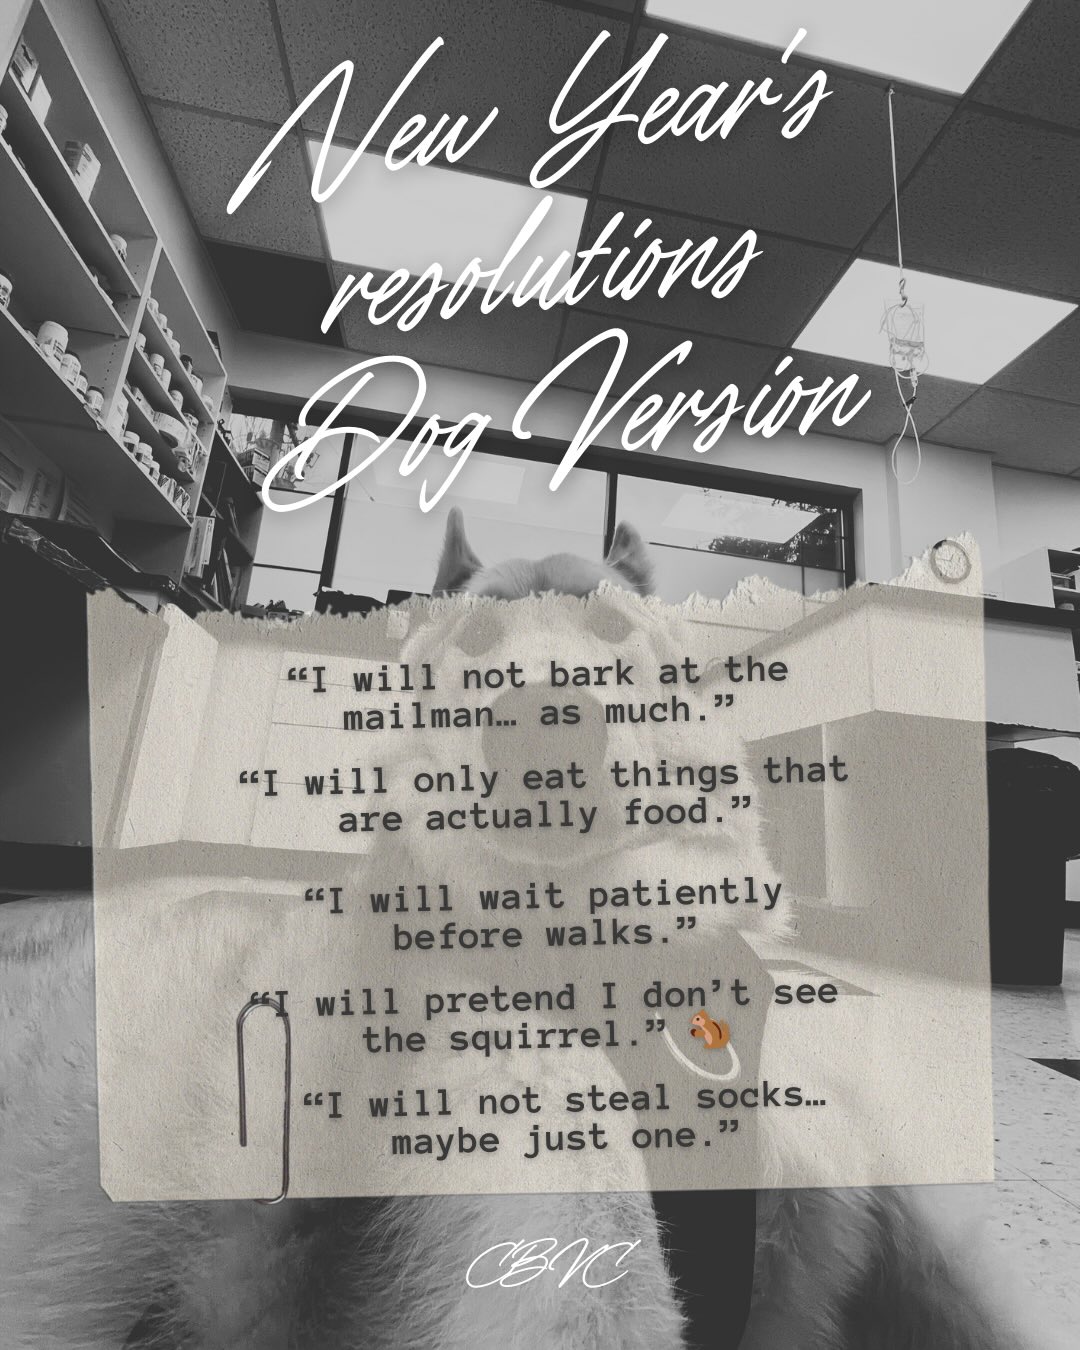 New Year's
resolutions
Dog Version
“I will not bark at the
mailman… as much.”
“I will only eat things that
are actually food.”
“I will wait patiently
before walks.”
“I will pretend I don’t see
the squirrel.” 🐿️
“I will not steal socks…
maybe just one.”
CBVC